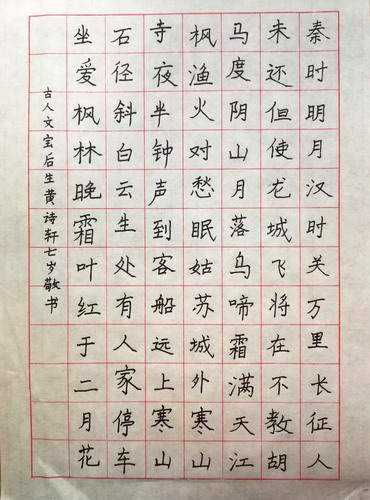 秦时明月汉时关万里长征人
未还但使龙城飞将在不教胡
马度阴山月落乌啼霜满天江
枫渔火对愁眠姑苏城外寒山
寺夜半钟声到客船远上寒山
石径斜白云生处有人家停车
坐爱枫林晚霜叶红于二月花
古人文宝后生黄诗轩七岁敬书